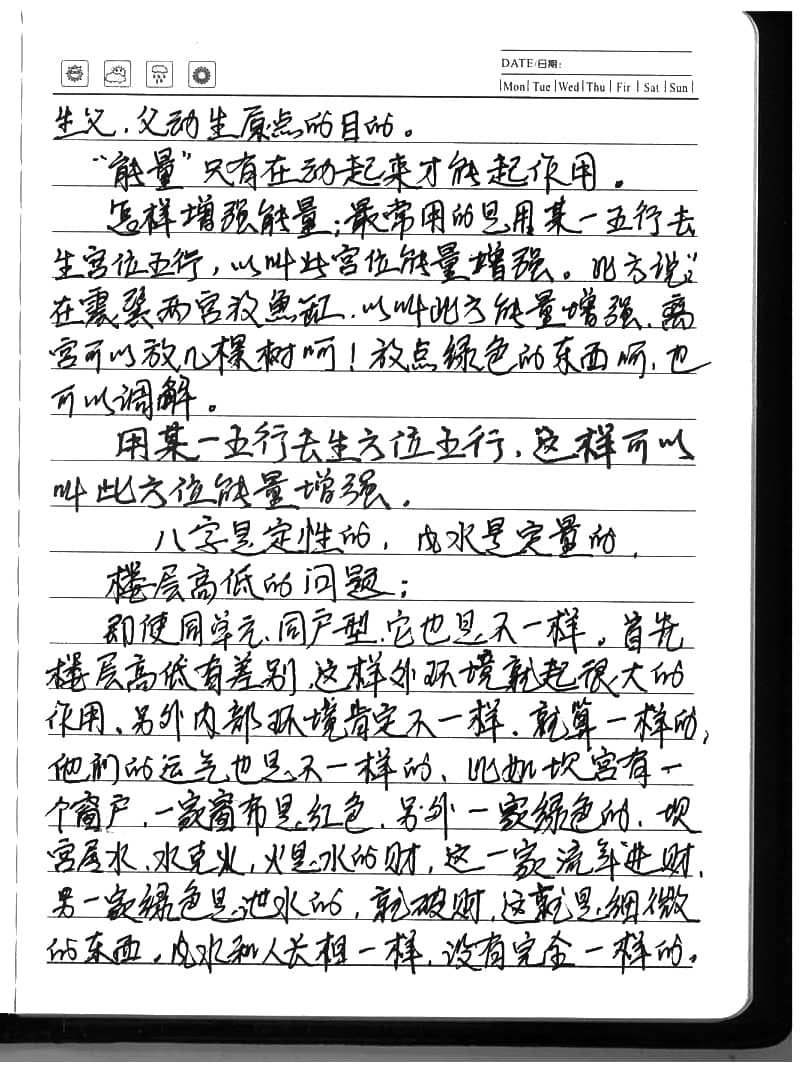 DATE/日期:
Mon Tue Wed Thu Fir Sat Sun
生父，父动生原点的目的。
“能量”只有在动起来才能起作用。
怎样增强能量：最常用的是用某一五行去
生宫位五行，以叫此宫位能量增强。比方说：
在震巽两宫放鱼缸，以叫此方能量增强，离
宫可以放几棵树呵！放点绿色的东西呵，也
可以调解。
用某一五行去生方位五行，这样可以
叫此方位能量增强。
八字是定性的，风水是定量的，
楼层高低的问题；
即使同单元、同户型，它也是不一样。首先
楼层高低有差别，这样外环境就起很大的
作用、另外内部环境肯定不一样，就算一样的，
他们的运气也是不一样的、比如坎宫有一
个窗户，一家窗布是红色，另外一家绿色的，坝
宫属水、水克火，火是水的财，这一家流年进财，
另一家绿色是泄水的，就破财，这就是细微
的东西，风水和人长相一样，没有完全一样的。